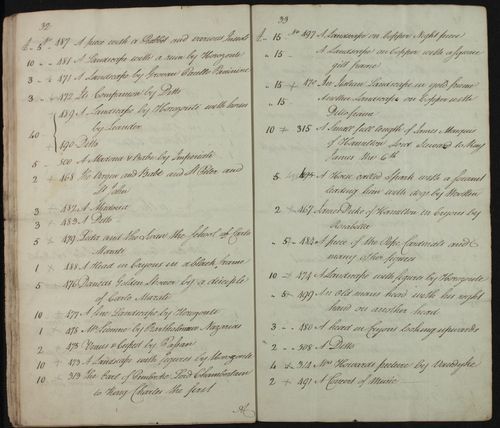 32
£ 5 No 487 A piece with a Rabbit and various Insects
10 481 A Landscape with a ruin by Horizonte
3 + 471 A Landscape by
3 + 472 Its Companion by Ditto
40 489 A Landscape by Horizonte with horses
by Leander
490 Ditto
5 500 A Madona & Babe by Imperiale
2 + 468 The Virgin and Babe and St Peter and
St John
3 482 A Madona
3 483 A Ditto
5 + 479 Leda and the Swan the School of Carlo
Marati
1 + 488 A Head in crayons in a Black frame
5 + 476 Danaes Golden Shower by a disciple
of Carlo Marati
10 + 477 A fine Landscape by Horizonte
1 + 478 St Jerome by Bartholomew
2 475 Venus & Cupid by
10 + 473 A Landscape with figures by Horizonte
10 + 313 The Earl of Pembroke Lord Chamberlain
to King Charles the first
33
£ 15 No 497 A Landscape on Copper Night piece
15 A Landscape on Copper with a square
gilt frame
15 + 470 An Indian Landscape in gold frame
15 Another Landscape on Copper with
Ditto frame
10 + 315 A Small full length of James Marquis
of Hamilton Lord Steward to King
James the 6th
5 A Horse and
leading him with dogs by
2 + 467 James Duke of Hamilton in Crayons by
Rosabella
5 + 484 A piece of the Pope Cardinals and
many other figures
10 + 474 A Landscape with figures by Horizonte
5 + 499 An old mans head with his right
hand on another head
3 480 A head in Crayons looking upwards
2 508 A Ditto
4 + 314 Mrs Howards picture by Vandyke
2 + 491 A Concert of Music